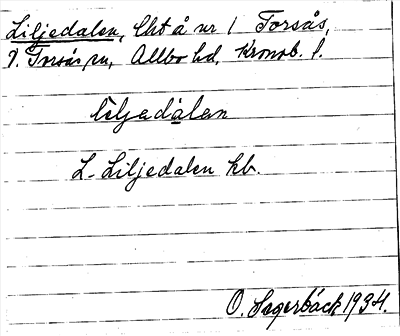 Liljedalen, lht å nr 1 Torsås,
V. Torsås sn, Allbo hd, Kronob. l.
lìljedàlen
L. Liljedalen kb.
O. Sagerbäck 1934.